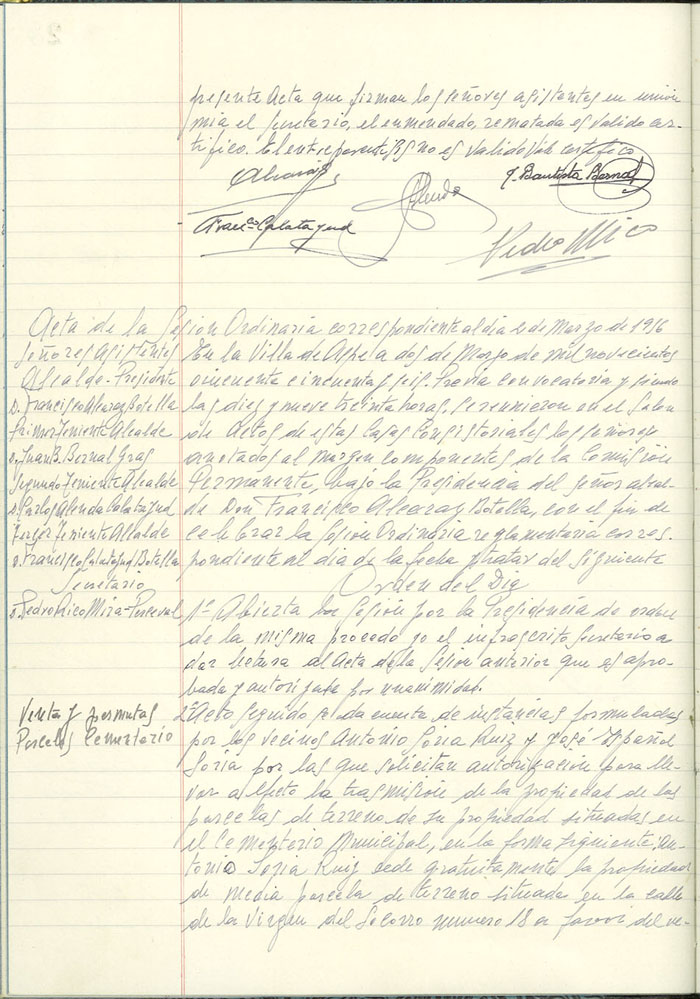 presente Acta que firman los señores asistentes en union
mia el Secretario, el enmendado, rematada es valido cer-
tifico. El entreparentesis no es valido Vale certifico
J. Bautista Bernal
Franco Calatayud
Pedro Mico
Acta de la Sesion Ordinaria correspondiente al dia 2 de Marzo de 1956
Señores Asistentes
Alcalde-Presidente
D. Francisco Alcaraz Botella
Primer Teniente Alcalde
D. Juan B. Bernal Gras
Segundo Teniente Alcalde
D. Carlos Alenda Calatayud
Tercer Teniente Alcalde
D. Francisco Calatayud Botella
Secretario
D. Pedro Mico Mira-Perceval
En la Villa de Aspe a dos de Marzo de mil novecientos
cincuenta y seis. Previa convocatoria y siendo
las diez y nueve treinta horas, se reunieron en el Salon
de Actos de estas Casas Consistoriales los señores
anotados al margen componentes de la Comisión
Permanente, bajo la Presidencia del señor alcal-
de Don Francisco Alcaraz Botella, con el fin de
celebrar la Sesion Ordinaria reglamentaria corres-
pondiente al dia de la fecha y tratar del siguiente
Orden del Dia
1º Abierta la Sesion por la Presidencia de orden
de la misma procedo yo el infrascrito Secretario a
dar lectura al Acta de la Sesion anterior que es apro-
bada y autorizada por unanimidad.
Venta y permutas
Parcelas Cementerio
2º Acto seguido se da cuenta de instancias formuladas
por los vecinos Antonio Soria Ruiz y José Español
Soria por las que solicitan autorización para lle-
var a efecto la trasmision de la propiedad de las
parcelas de terreno de su propiedad situadas en
el Cementerio Municipal, en la forma siguiente: An-
tonio Soria Ruiz cede gratuitamente la propiedad
de media parcela de terreno situada en la calle
de la Virgen del Socorro numero 18 a favor del ve-